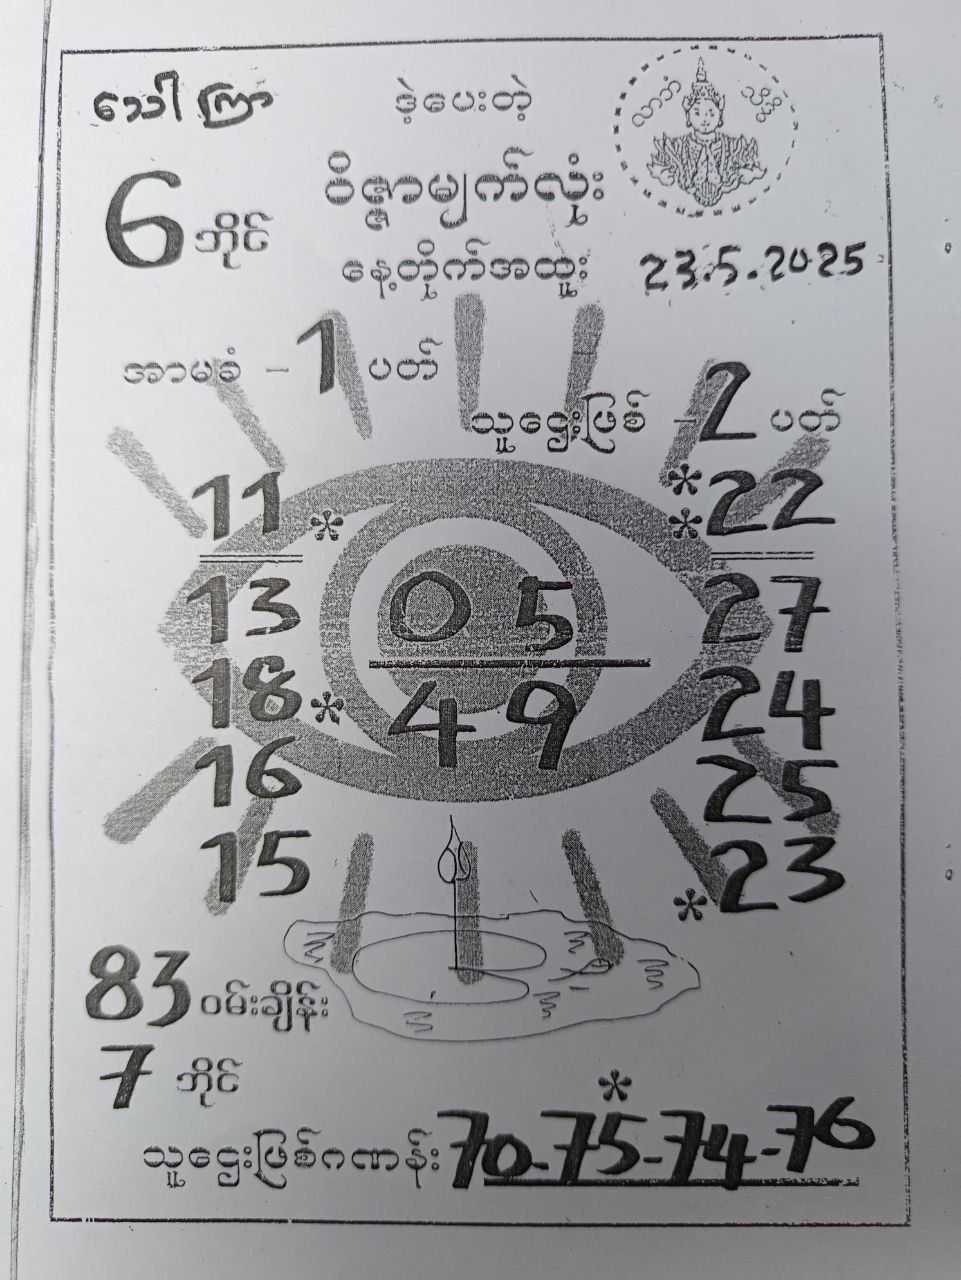 သော်ကြာ
ဒဲ့ပေးတဲ့
6 ဘိုင်
ဝိဇ္ဇာမျက်လုံး
နေ့တိုက်အထူး 23.5.2025
အာမခံ - 1 ပတ်
သူဌေးဖြစ် - 2 ပတ်
11 * ** 22
13 05 27
18 * 49 24
16 25
15 * 23
83 ဝမ်းချိန်း
7 ဘိုင်
သူဌေးဖြစ်ဂဏန်း 70-75*-74-76